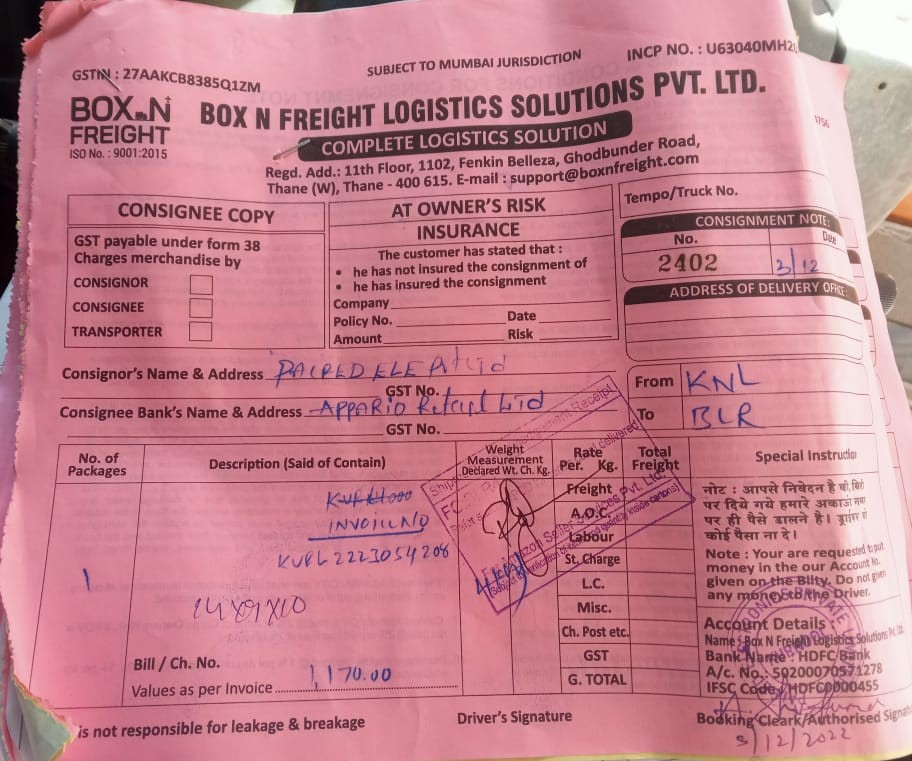 GSTIN : 27AAKCB8385Q1ZM
SUBJECT TO MUMBAI JURISDICTION
INCP NO. : U63040MH2
BOX N FREIGHT
ISO No. : 9001:2015
BOX N FREIGHT LOGISTICS SOLUTIONS PVT. LTD.
1756
COMPLETE LOGISTICS SOLUTION
Regd. Add.: 11th Floor, 1102, Fenkin Belleza, Ghodbunder Road,
Thane (W), Thane - 400 615. E-mail : support@boxnfreight.com
CONSIGNEE COPY
GST payable under form 38
Charges merchandise by
CONSIGNOR
CONSIGNEE
TRANSPORTER
AT OWNER'S RISK
INSURANCE
The customer has stated that :
• he has not insured the consignment of
• he has insured the consignment
Company
Policy No. Date
Amount Risk
Tempo/Truck No.
CONSIGNMENT NOTE:
No. Date
2402 3/12
ADDRESS OF DELIVERY OFFICE:
Consignor's Name & Address
GST No.
Consignee Bank's Name & Address APPARIO Retail Ltd
GST No.
From KNL
To BLR
No. of Packages
Description (Said of Contain)
Weight Measurement Declared Wt. Ch. Kg.
Rate Per. Kg.
Total Freight
Special Instruction
INVOICE NO
KUPL2223054206
1
Bill / Ch. No.
Values as per Invoice 1,170.00
Freight
A.O.C.
Labour
St. Charge
L.C.
Misc.
Ch. Post etc.
GST
G. TOTAL
नोट : आपसे निवेदन है की, बिल्टि
पर दिये गये हमारे अकाऊंट नंबर
पर ही पैसे डालने है। ड्रायवर को
कोई पैसा ना दे।
Note : Your are requested to put
money in the our Account No.
given on the Bilty. Do not given
any money to the Driver.
Account Details :
Name : Box N Freight Logistics Solutions Pvt. Ltd.
Bank Name : HDFC Bank
A/c. No.: 50200070571278
IFSC Code : HDFC0000455
is not responsible for leakage & breakage
Driver's Signature
Booking Cleark/Authorised Signat
3/12/2022